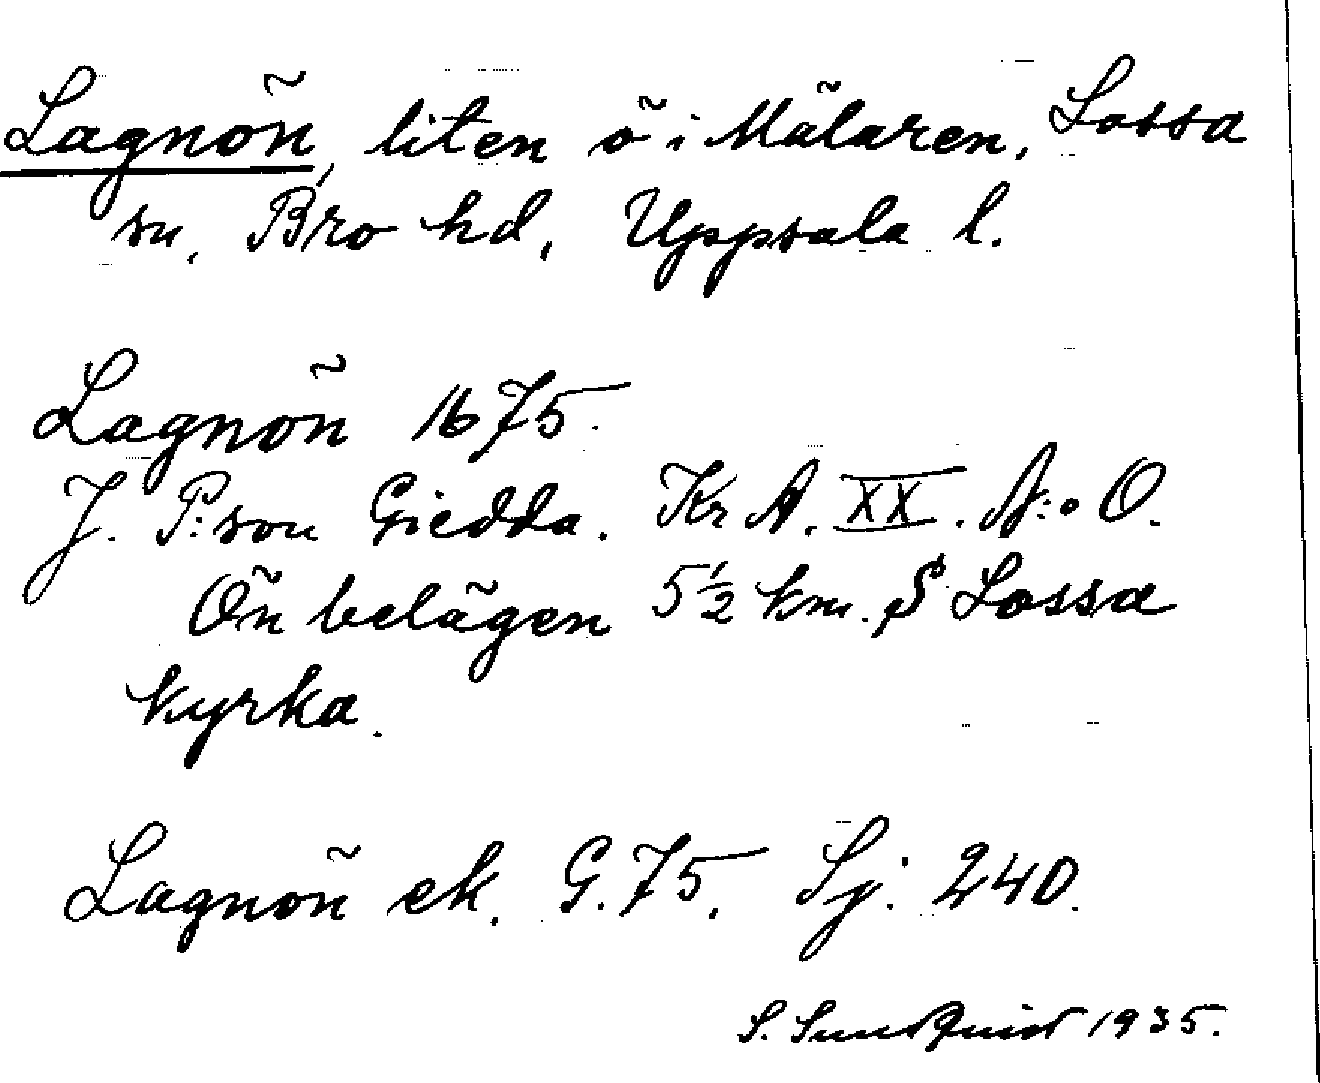 Lagnön, liten ö i Mälaren, Lossa
sn, Bro hd, Uppsala l.
Lagnön 1675.
J. P:son Giedda. Kr A. XX. N:o O.
Ön belägen 5½ km. S Lossa
kyrka.
Lagnön ek. G. 75. Sj. 240.
S. Sundquist 1935.